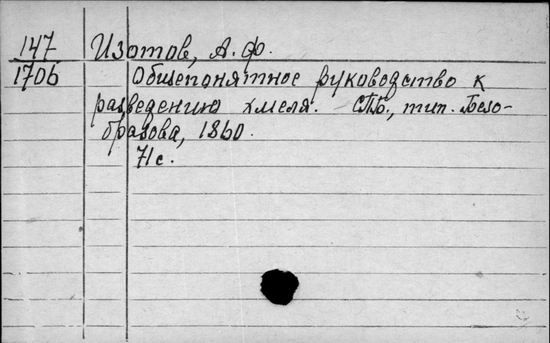 147 Изотов, А. Ф.
1706 Общепонятное руководство к
разведению хмеля. СПБ, тип. Безо-
бразова, 1860.
71 с.